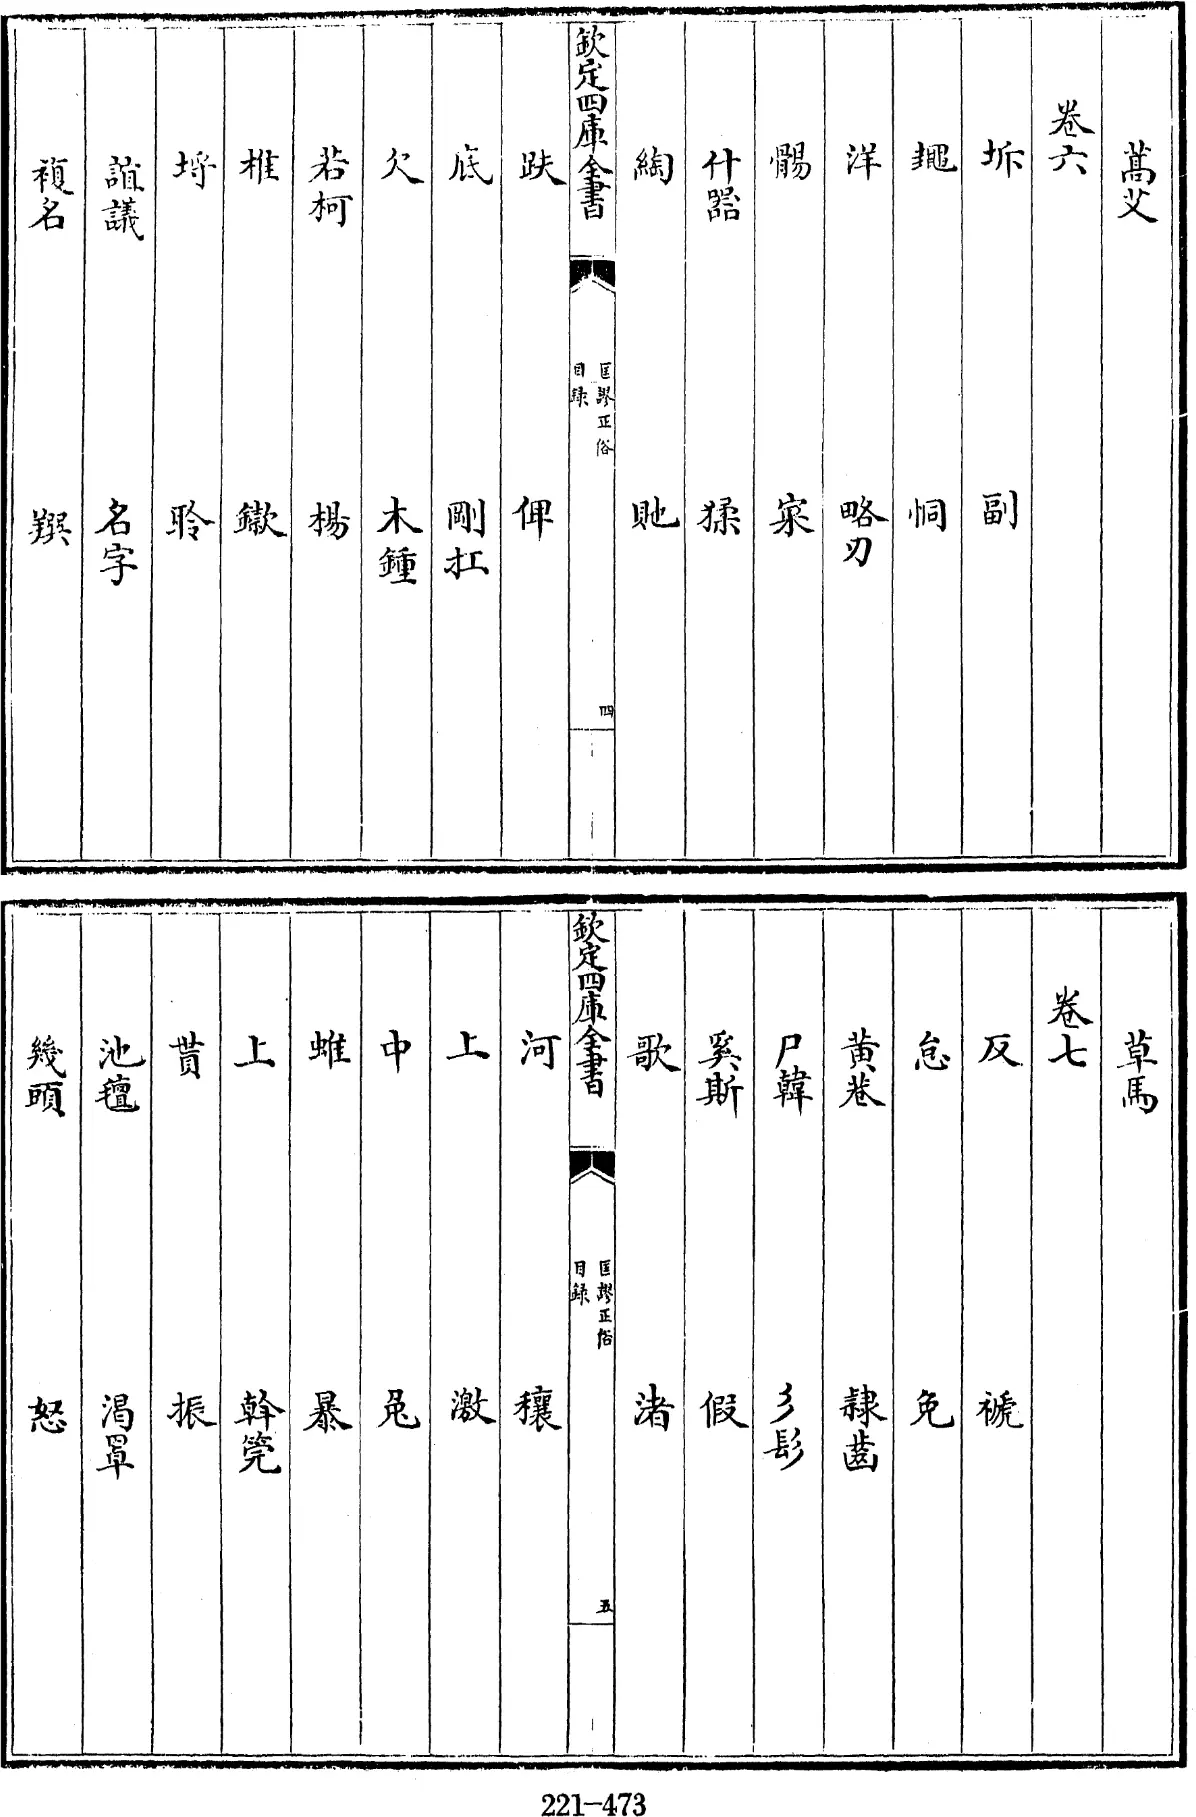 蒿艾
卷六
坼 副
䵷 恫
洋 略刃
髑 寀
什器 猱
綯 貤
欽定四庫全書
匡謬正俗
目錄
四
趺 俾
底 剛扛
欠 木鍾
若柯 楊
椎 鏉
埒 聆
誼議 名字
複名
草馬
卷七
反 褫
怠 免
黃巷 隸齒
尸韓 彡髟
奚斯 假
歌 渚
欽定四庫全書
匡謬正俗
目錄
五
河 穰
上 激
中 兔
蜼 暴
上 幹筦
貰 振
池氊 渴罩
幾頭 怒
221-473